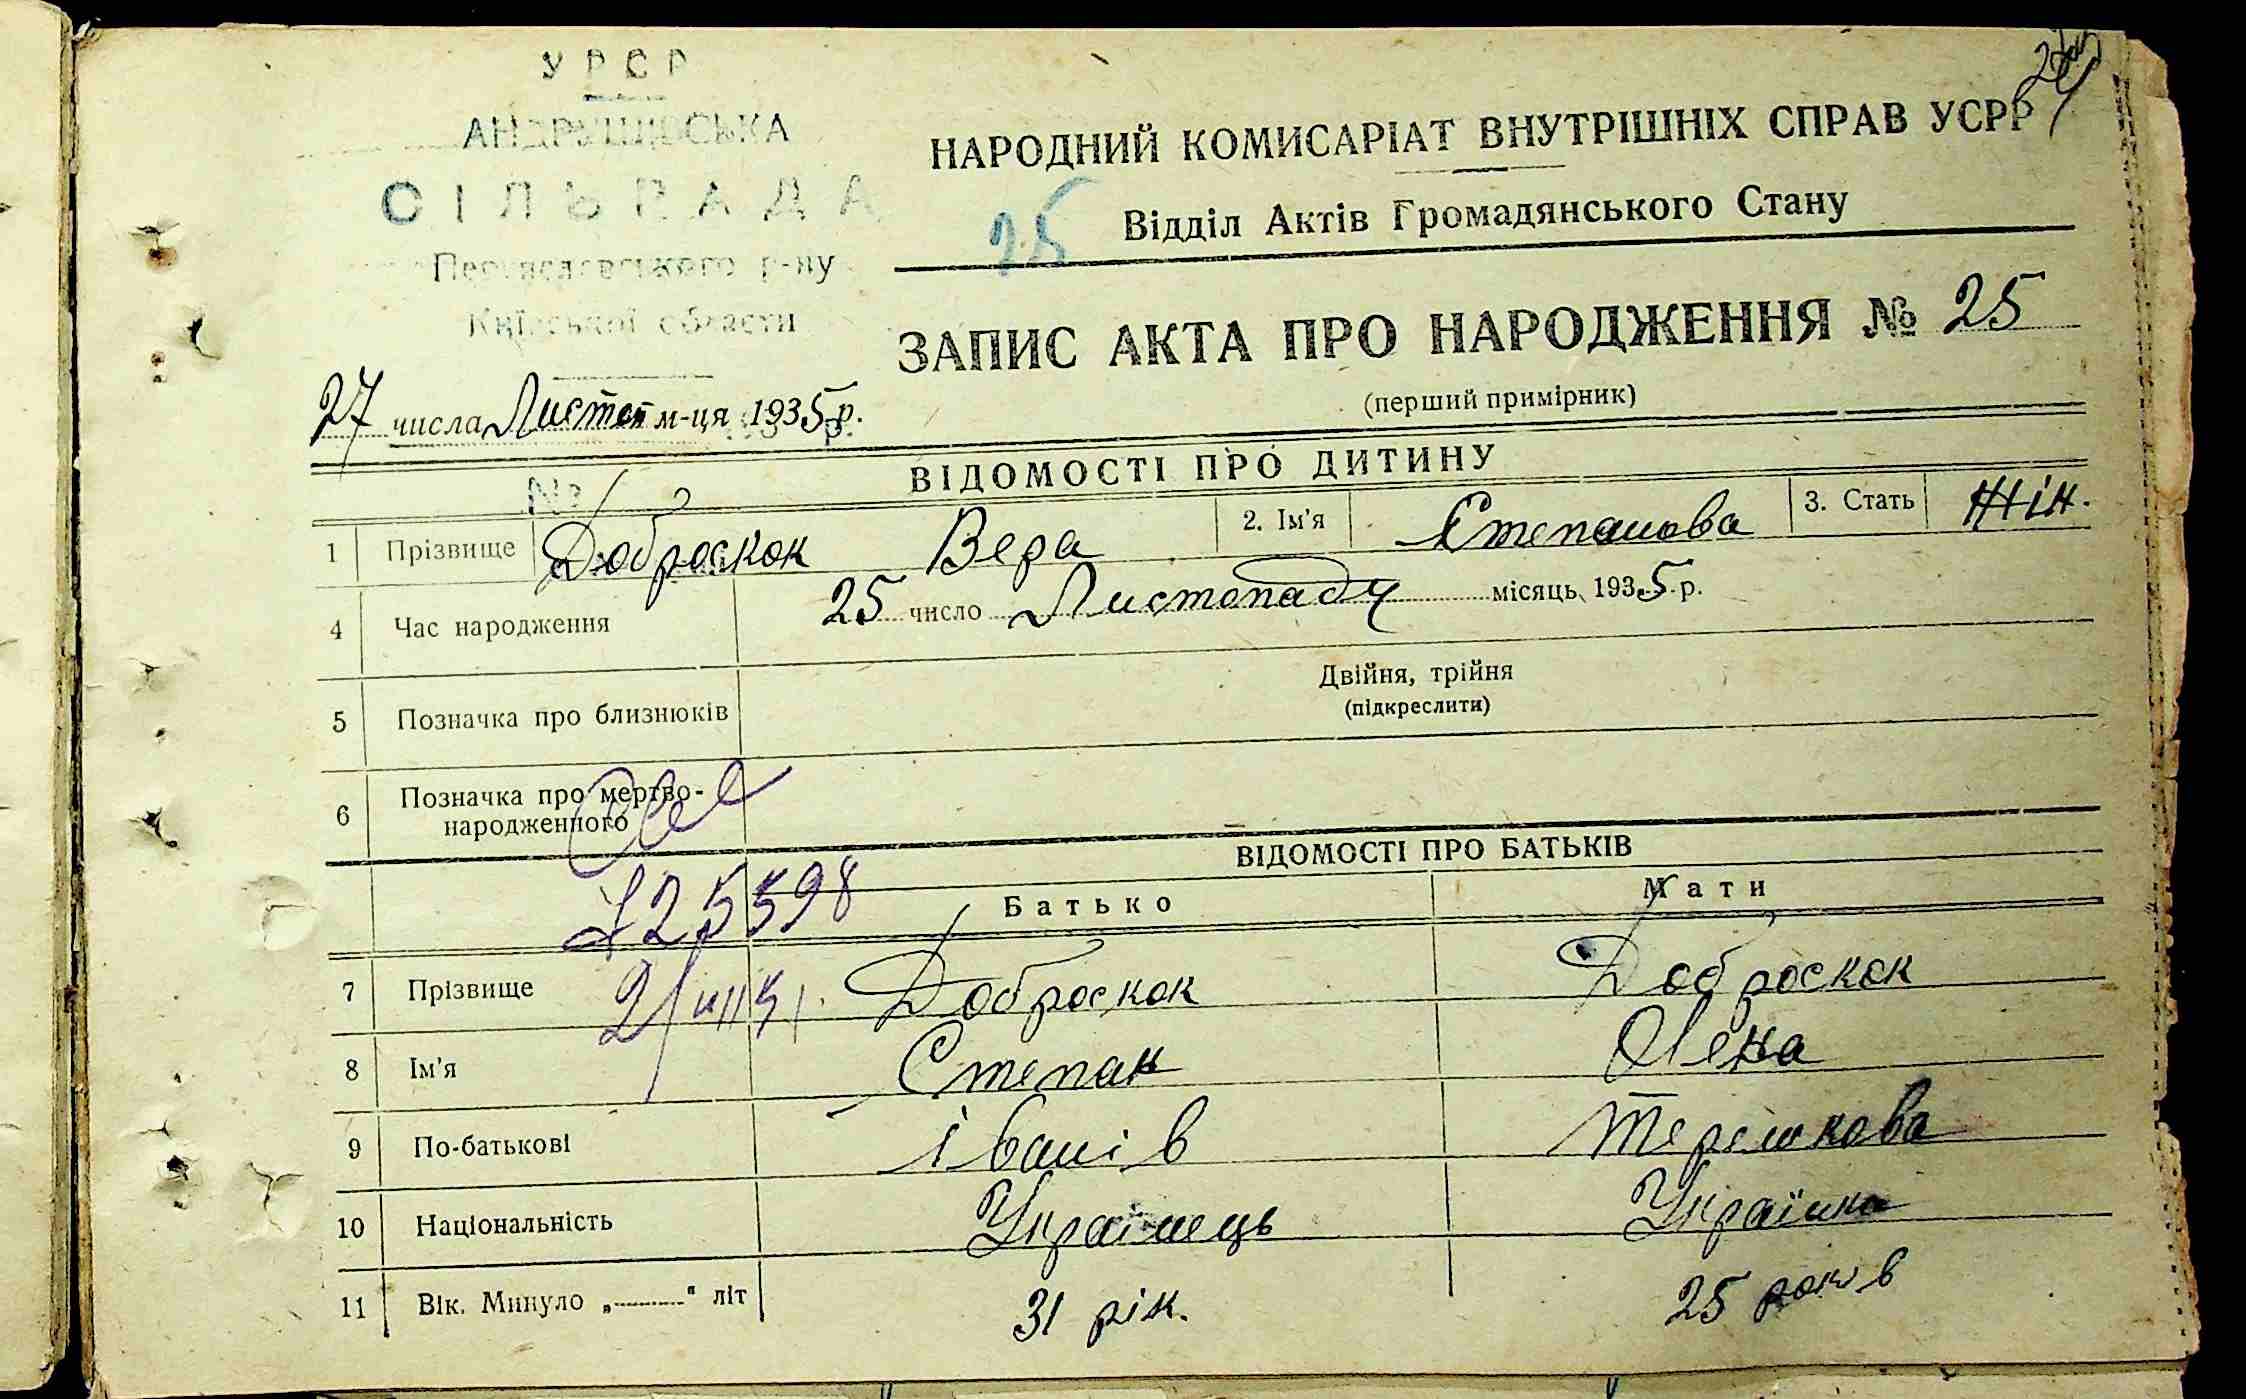 УРСР
АНДРУШІВСЬКА
СІЛЬРАДА
Переяславського р-ну
Київської области
27 числа Листоп м-ця 1935 р.
№
НАРОДНИЙ КОМИСАРІАТ ВНУТРІШНІХ СПРАВ УСРР
25 Відділ Актів Громадянського Стану
ЗАПИС АКТА ПРО НАРОДЖЕННЯ № 25
(перший примірник)
ВІДОМОСТІ ПРО ДИТИНУ
1 Прізвище Доброскок Вера 2. Ім'я Степанова 3. Стать Жін.
4 Час народження 25 число Листопаду місяць 1935 р.
5 Позначка про близнюків Двійня, трійня
(підкреслити)
6 Позначка про мертво-
народженного
ВІДОМОСТІ ПРО БАТЬКІВ
125598
Батько Мати
7 Прізвище Доброскок Доброскок
8 Ім'я Степан Олена
9 По-батькові Іванів Терешкова
10 Національність Українець Українка
11 Вік. Минуло „ " літ 31 рік. 25 років